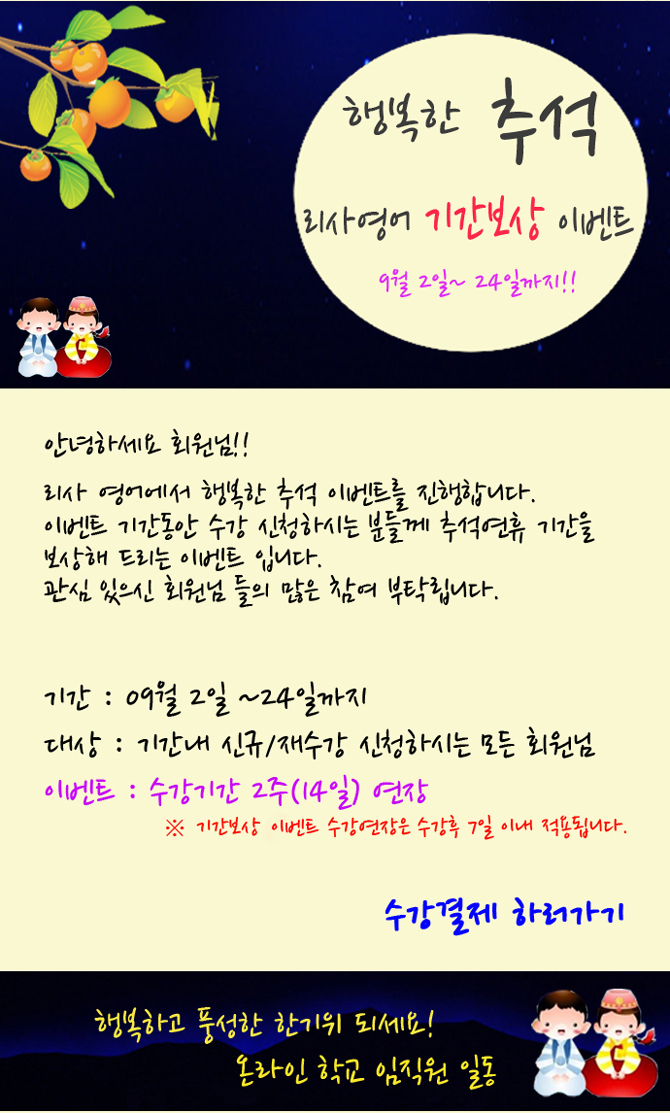 행복한 추석
리사영어 기간보상 이벤트
9월 2일~ 24일까지!!
안녕하세요 회원님!!
리사 영어에서 행복한 추석 이벤트를 진행합니다.
이벤트 기간동안 수강 신청하시는 분들께 추석연휴 기간을
보상해 드리는 이벤트 입니다.
관심 있으신 회원님 들의 많은 참여 부탁립니다.
기간 : 09월 2일 ~24일까지
대상 : 기간내 신규/재수강 신청하시는 모든 회원님
이벤트 : 수강기간 2주(14일) 연장
※ 기간보상 이벤트 수강연장은 수강후 7일 이내 적용됩니다.
수강결제 하러가기
행복하고 풍성한 한기위 되세요!
온라인 학교 임직원 일동